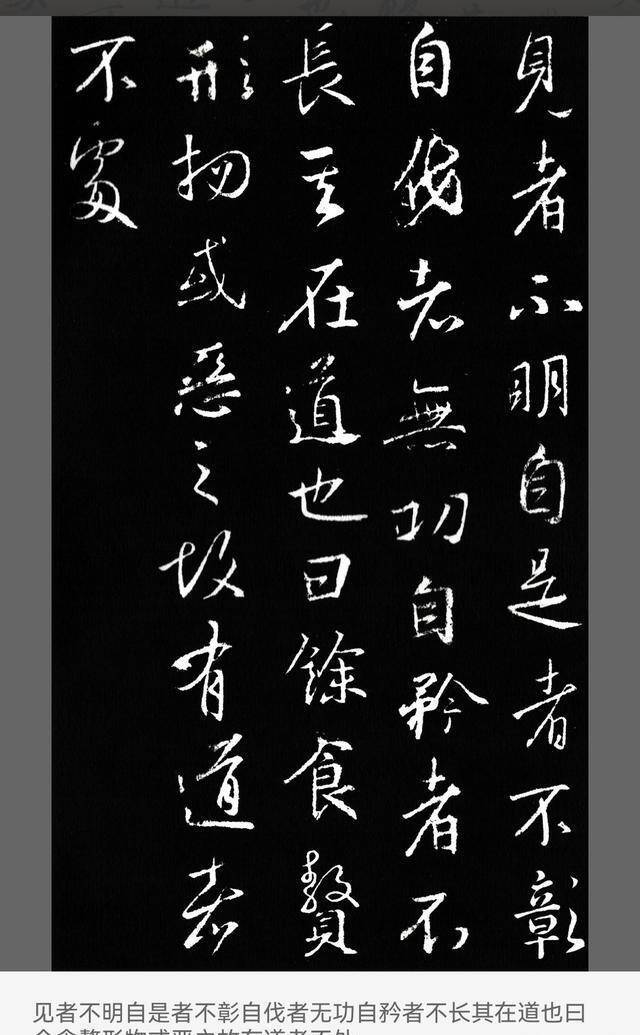 見者不明自是者不彰
自伐者無功自矜者不
長其在道也曰餘食贅
形物或惡之故有道者
不處
见者不明自是者不彰自伐者无功自矜者不长其在道也曰
余食赘形物或恶之故有道者不处